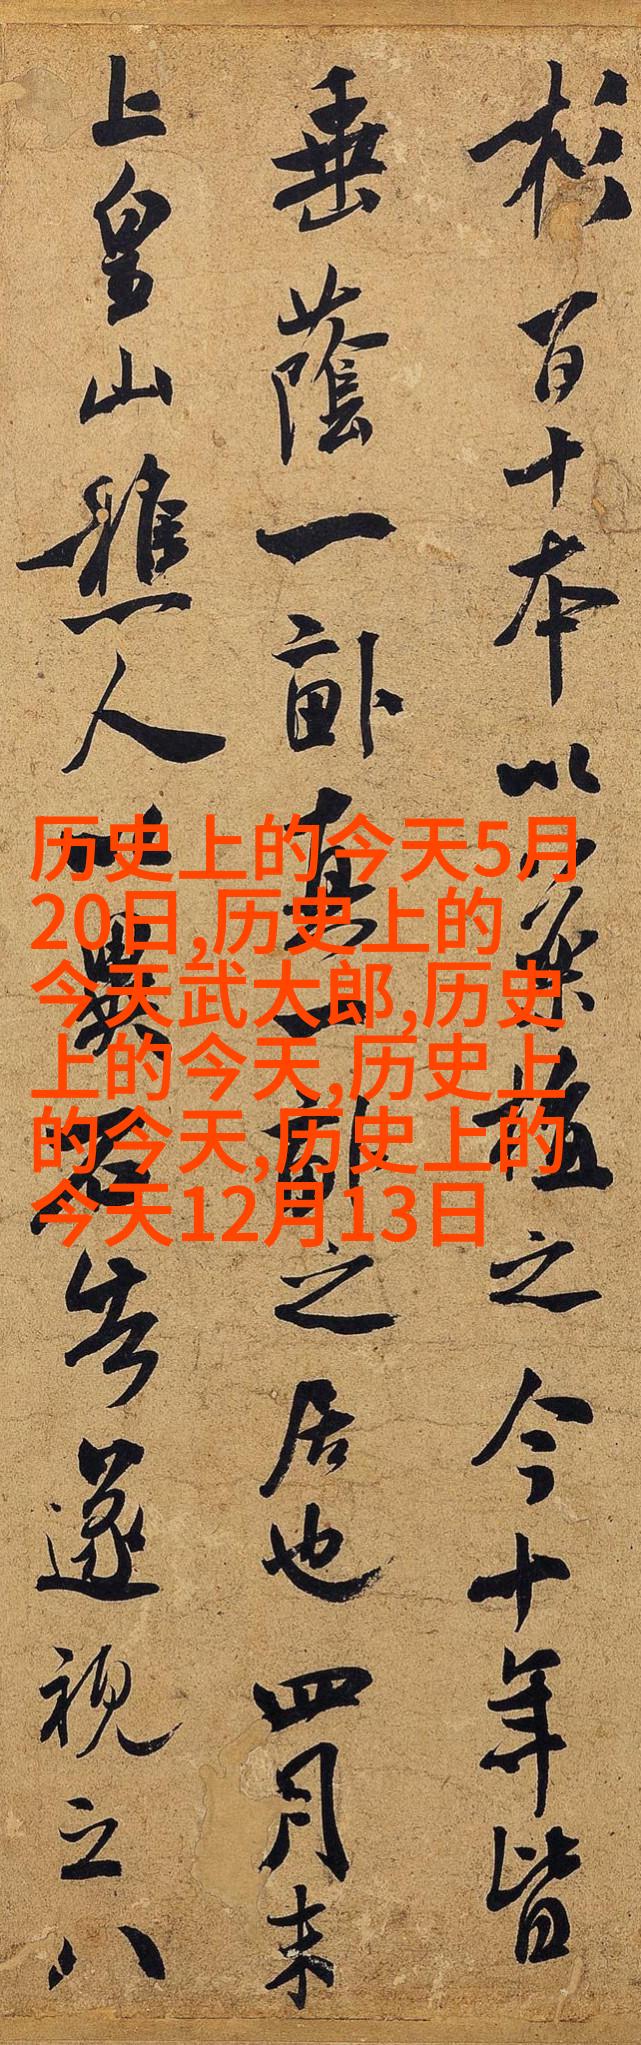 杉百十本以植之今十年皆
垂蔭一畝真一畝之居也四月末
上皇山樵人以異石告遂視之八
历史上的今天5月
20日,历史上的
今天武大郎,历史
上的今天,历史上
的今天,历史上的
今天12月13日